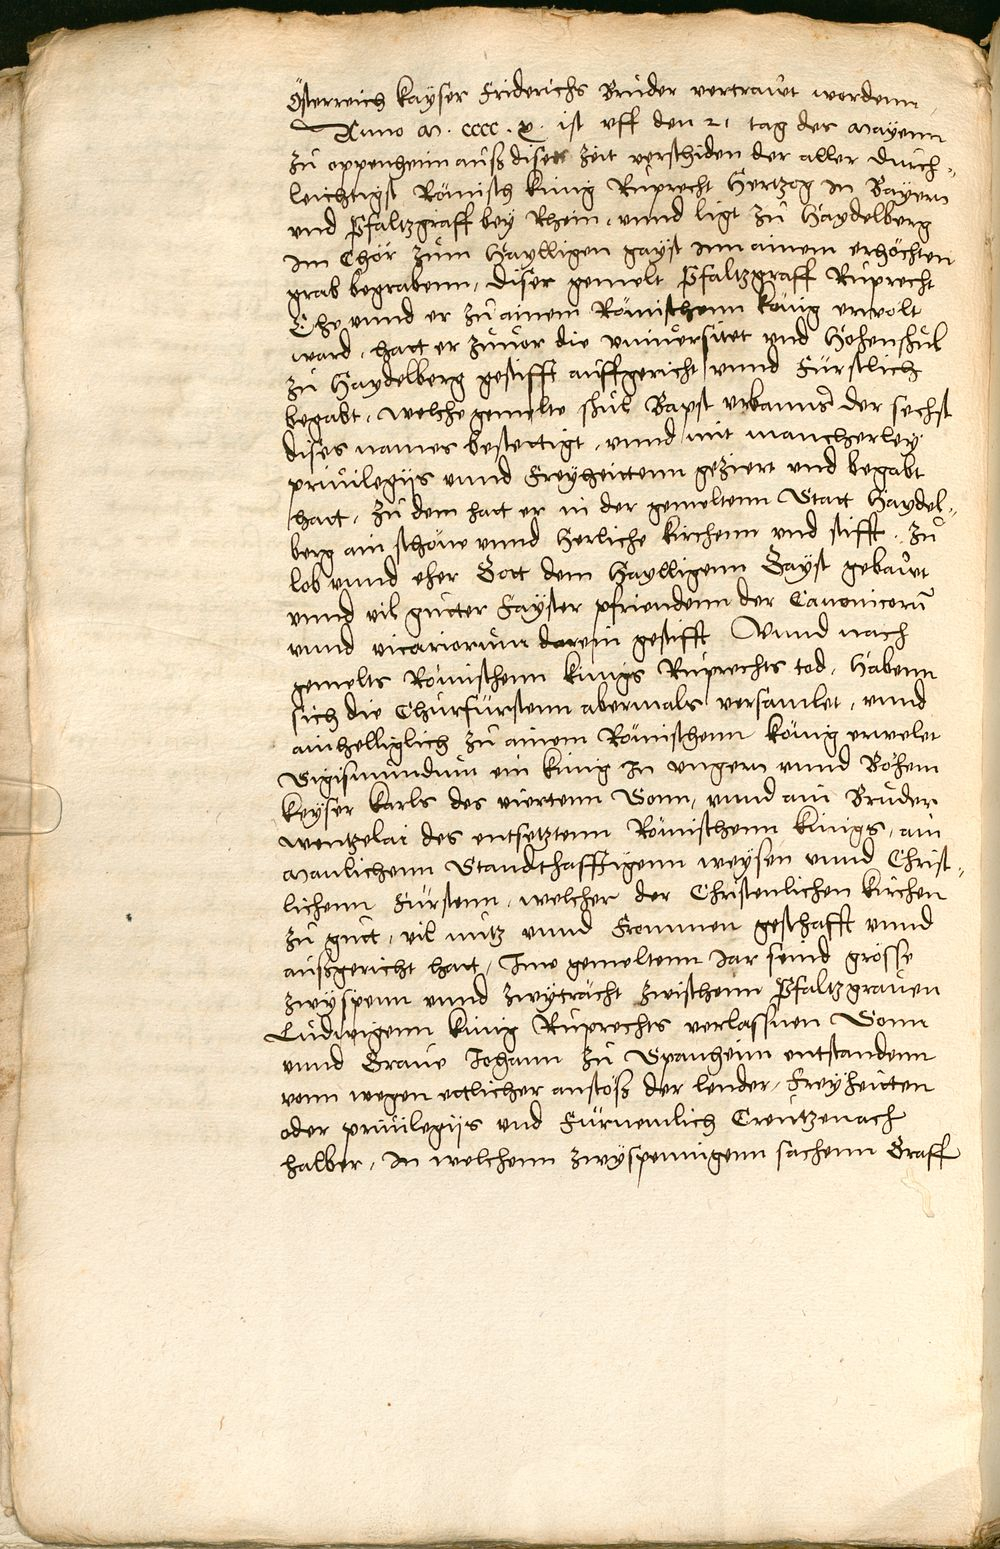 Österreich kayser Friderichs Bruder vertrawt wordenn,
Anno M. cccc. x. ist vff den 21 tag des Mayenn
zů oppenheim auß diser zeit verschiden der aller durch-
leichtigst Römisch künig Růprecht Hertzog in Bayern
vnd Pfaltzgraff bey Rhein, vnnd ligt zů Haydelberg
im Chör zům Haylligen gayst inn ainem erhöchten
grab begrabenn, diser gemelt Pfaltzgraff Růprecht
Ehe vnnd er zů ainem Römischenn könig erwolt
ward, hatt er zůuor die vniuersitet vnd Hohenshůl
zů Haydelberg gestifft auffgericht vnnd Fürstlich
begabt, welche gemelte shůl Bapst vrbanus der sechst
dises names bestettigt, vnnd mit mancherley
priuilegijs vnnd Freyheittenn geziert vnd begabt
hatt, zů dem hatt er in der gemeltenn Statt Haydel-
berg ain schöne vnnd Herliche kirchenn vnd stifft, zů
lob vnnd eher Gott dem Haylligenn Gayst gebawt
vnnd vil gůtter Fayster pfriendenn der Canonicorū
vnnd vicariorum darein gestifft Vnnd nach
gemelts Römischenn künigs Růprechts tod, Habenn
sich die Churfürstenn abermals versamlet, vnnd
ainhelliglich zů ainem Römischenn König erwelet
Sigismůndům ein künig in vngern vnnd Böhem
keyser karls des viertenn Sonn, vnnd ain Brůder
wentzelai des entsetztenn Römischenn künigs, ain
Manlichenn Standthafftigenn weysen vnnd Christ-
lichenn Fürstenn, welcher der Christenlichen kirchen
zů gůtt, vil nůtz vnnd Frommen geschafft vnnd
außgericht hatt, Imo gemeltenn Jar seind grösse
zwyspenn vnnd zwyträcht zwischenn Pfaltzgrauen
Ludwigenn künig Růprechts verlassnen Sonn
vnnd Graue Johann zů Spanheim entstandenn
vonn wegen ettlicher anstöß der lender, Freyheitten
oder priuilegijs vnd Fürnemlich Creutzenach
halber, In welchenn zwyspennigenn sachenn Graff